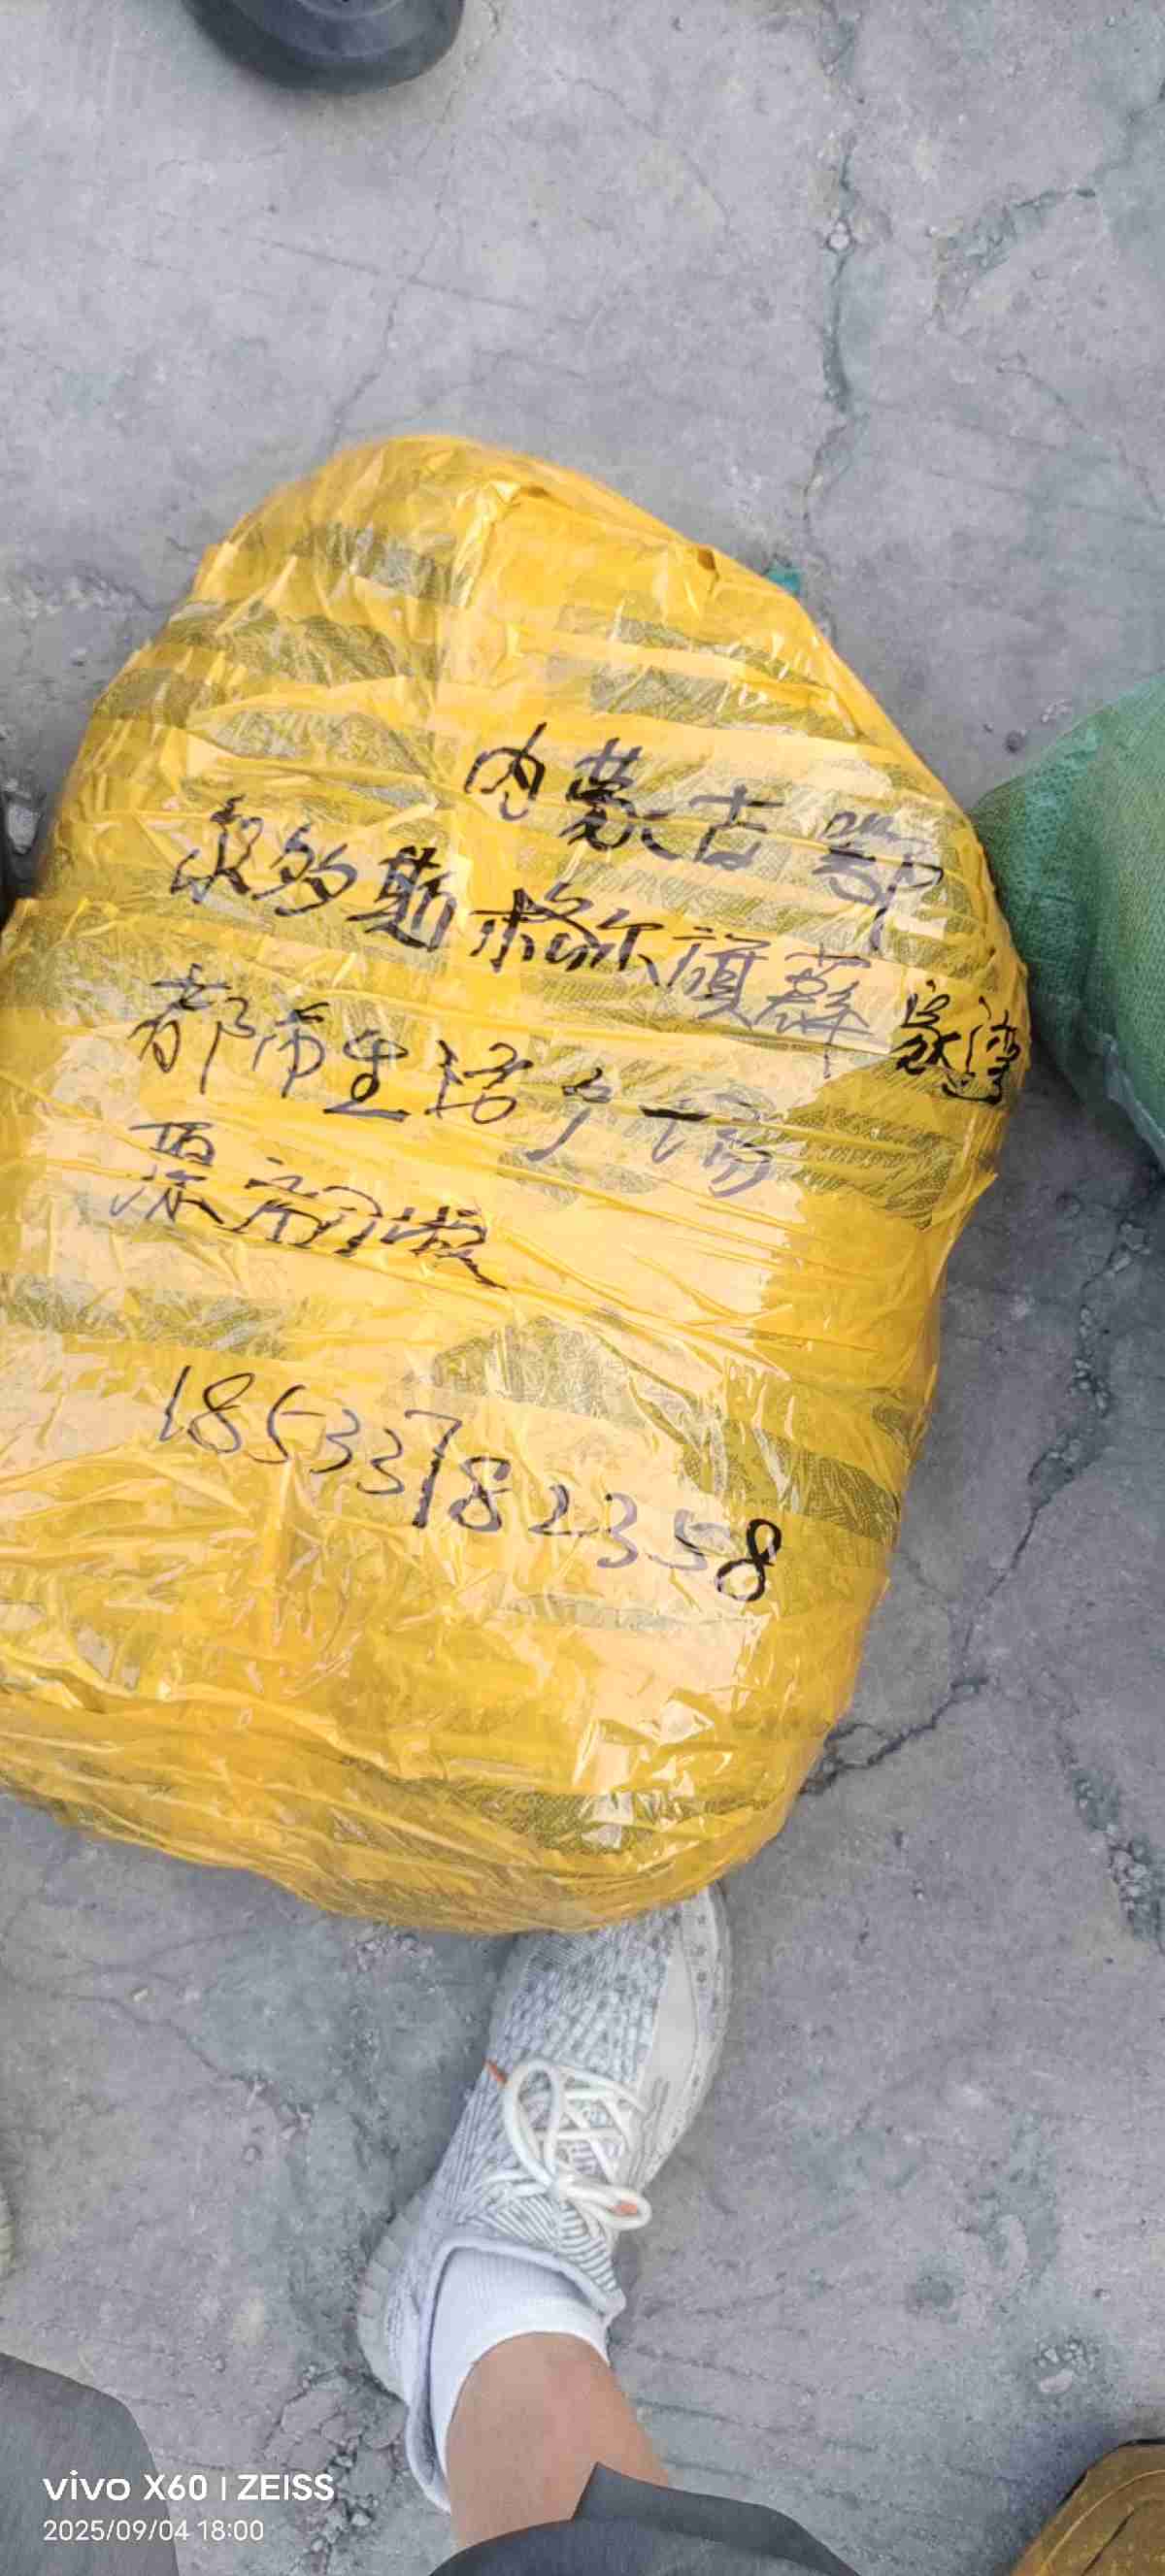 内蒙古鄂
尔多斯准格尔旗薛家湾
都市生活广场
西
古街
18533782358
vivo X60 | ZEISS
2025/09/04 18:00